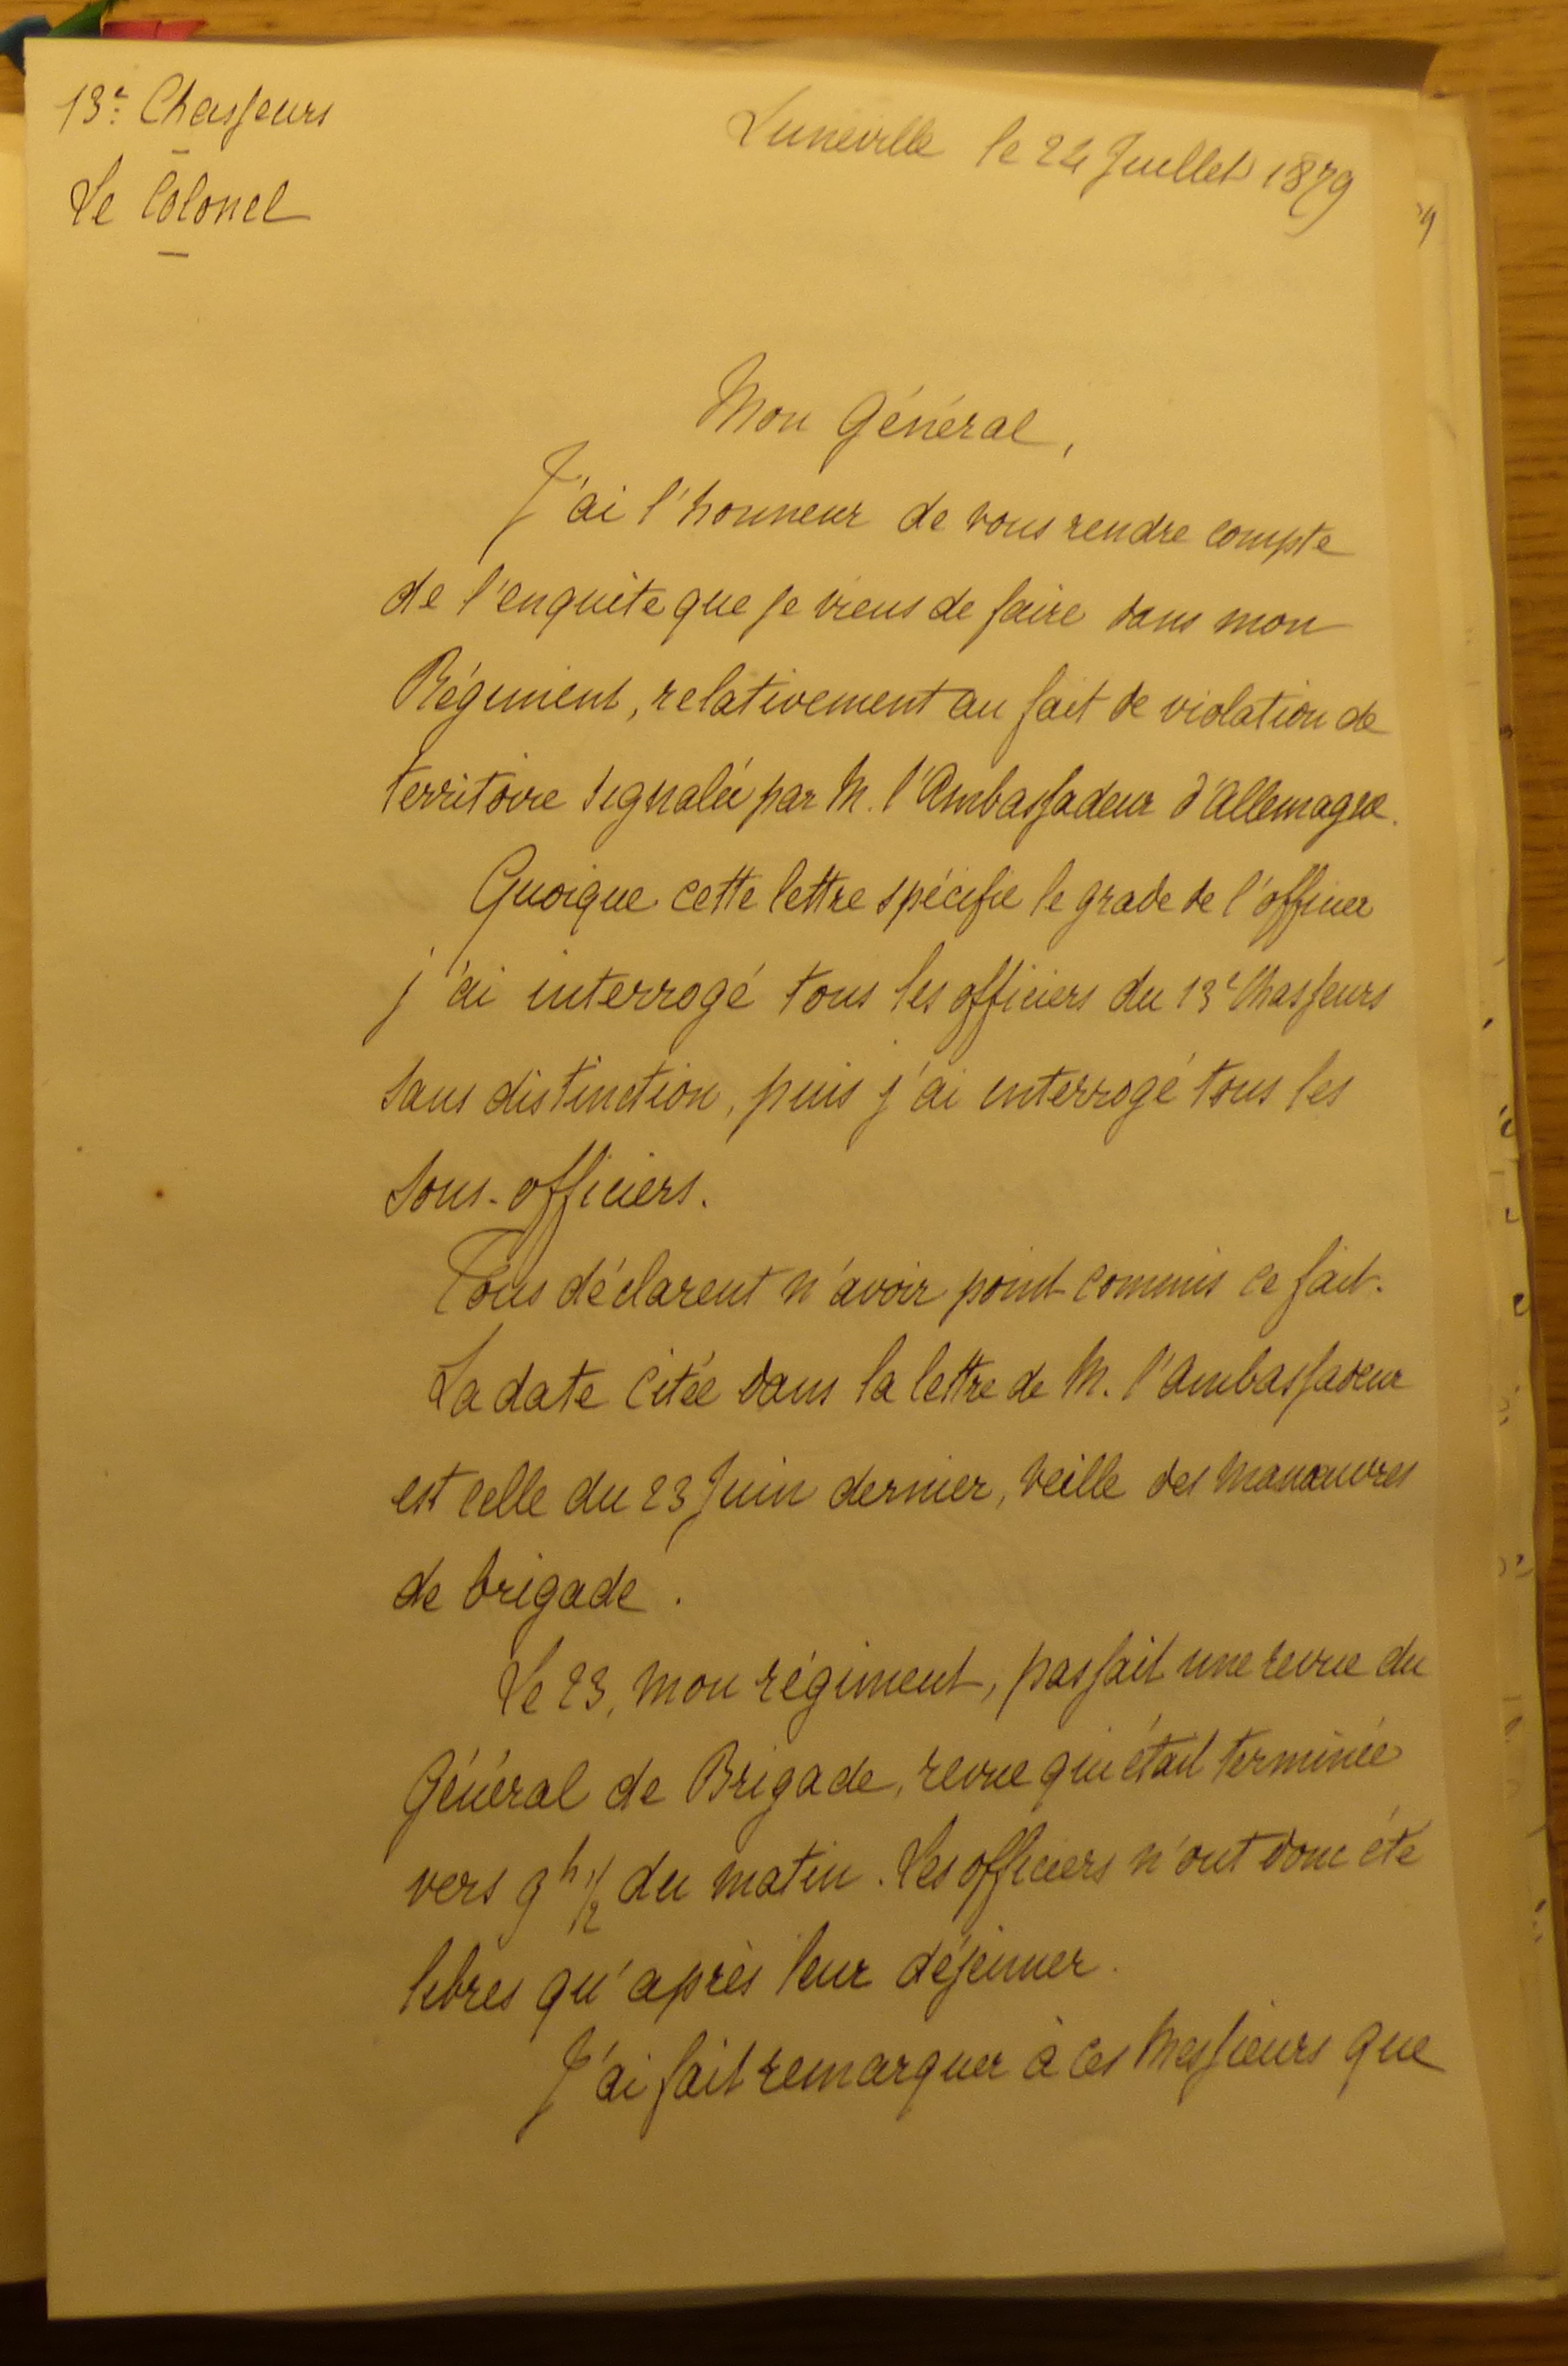 13e Chasseurs
Le Colonel
Lunéville le 24 Juillet 1879
Mon Général,
J'ai l'honneur de vous rendre compte
de l'enquête que je viens de faire dans mon
Régiment, relativement au fait de violation de
territoire signalé par M. l'Ambassadeur d'Allemagne.
Quoique cette lettre spécifie le grade de l'officier
j'ai interrogé tous les officiers du 13e Chasseurs
sans distinction, puis j'ai interrogé tous les
sous-officiers.
Tous déclarent n'avoir point commis ce fait.
La date citée dans la lettre de M. l'Ambassadeur
est celle du 23 Juin dernier, veille des manœuvres
de brigade.
Le 23, mon régiment, passait une revue du
Général de Brigade, revue qui était terminée
vers 9h 1/2 du matin. Les officiers n'ont donc été
libres qu'après leur déjeuner.
J'ai fait remarquer à ces Messieurs que